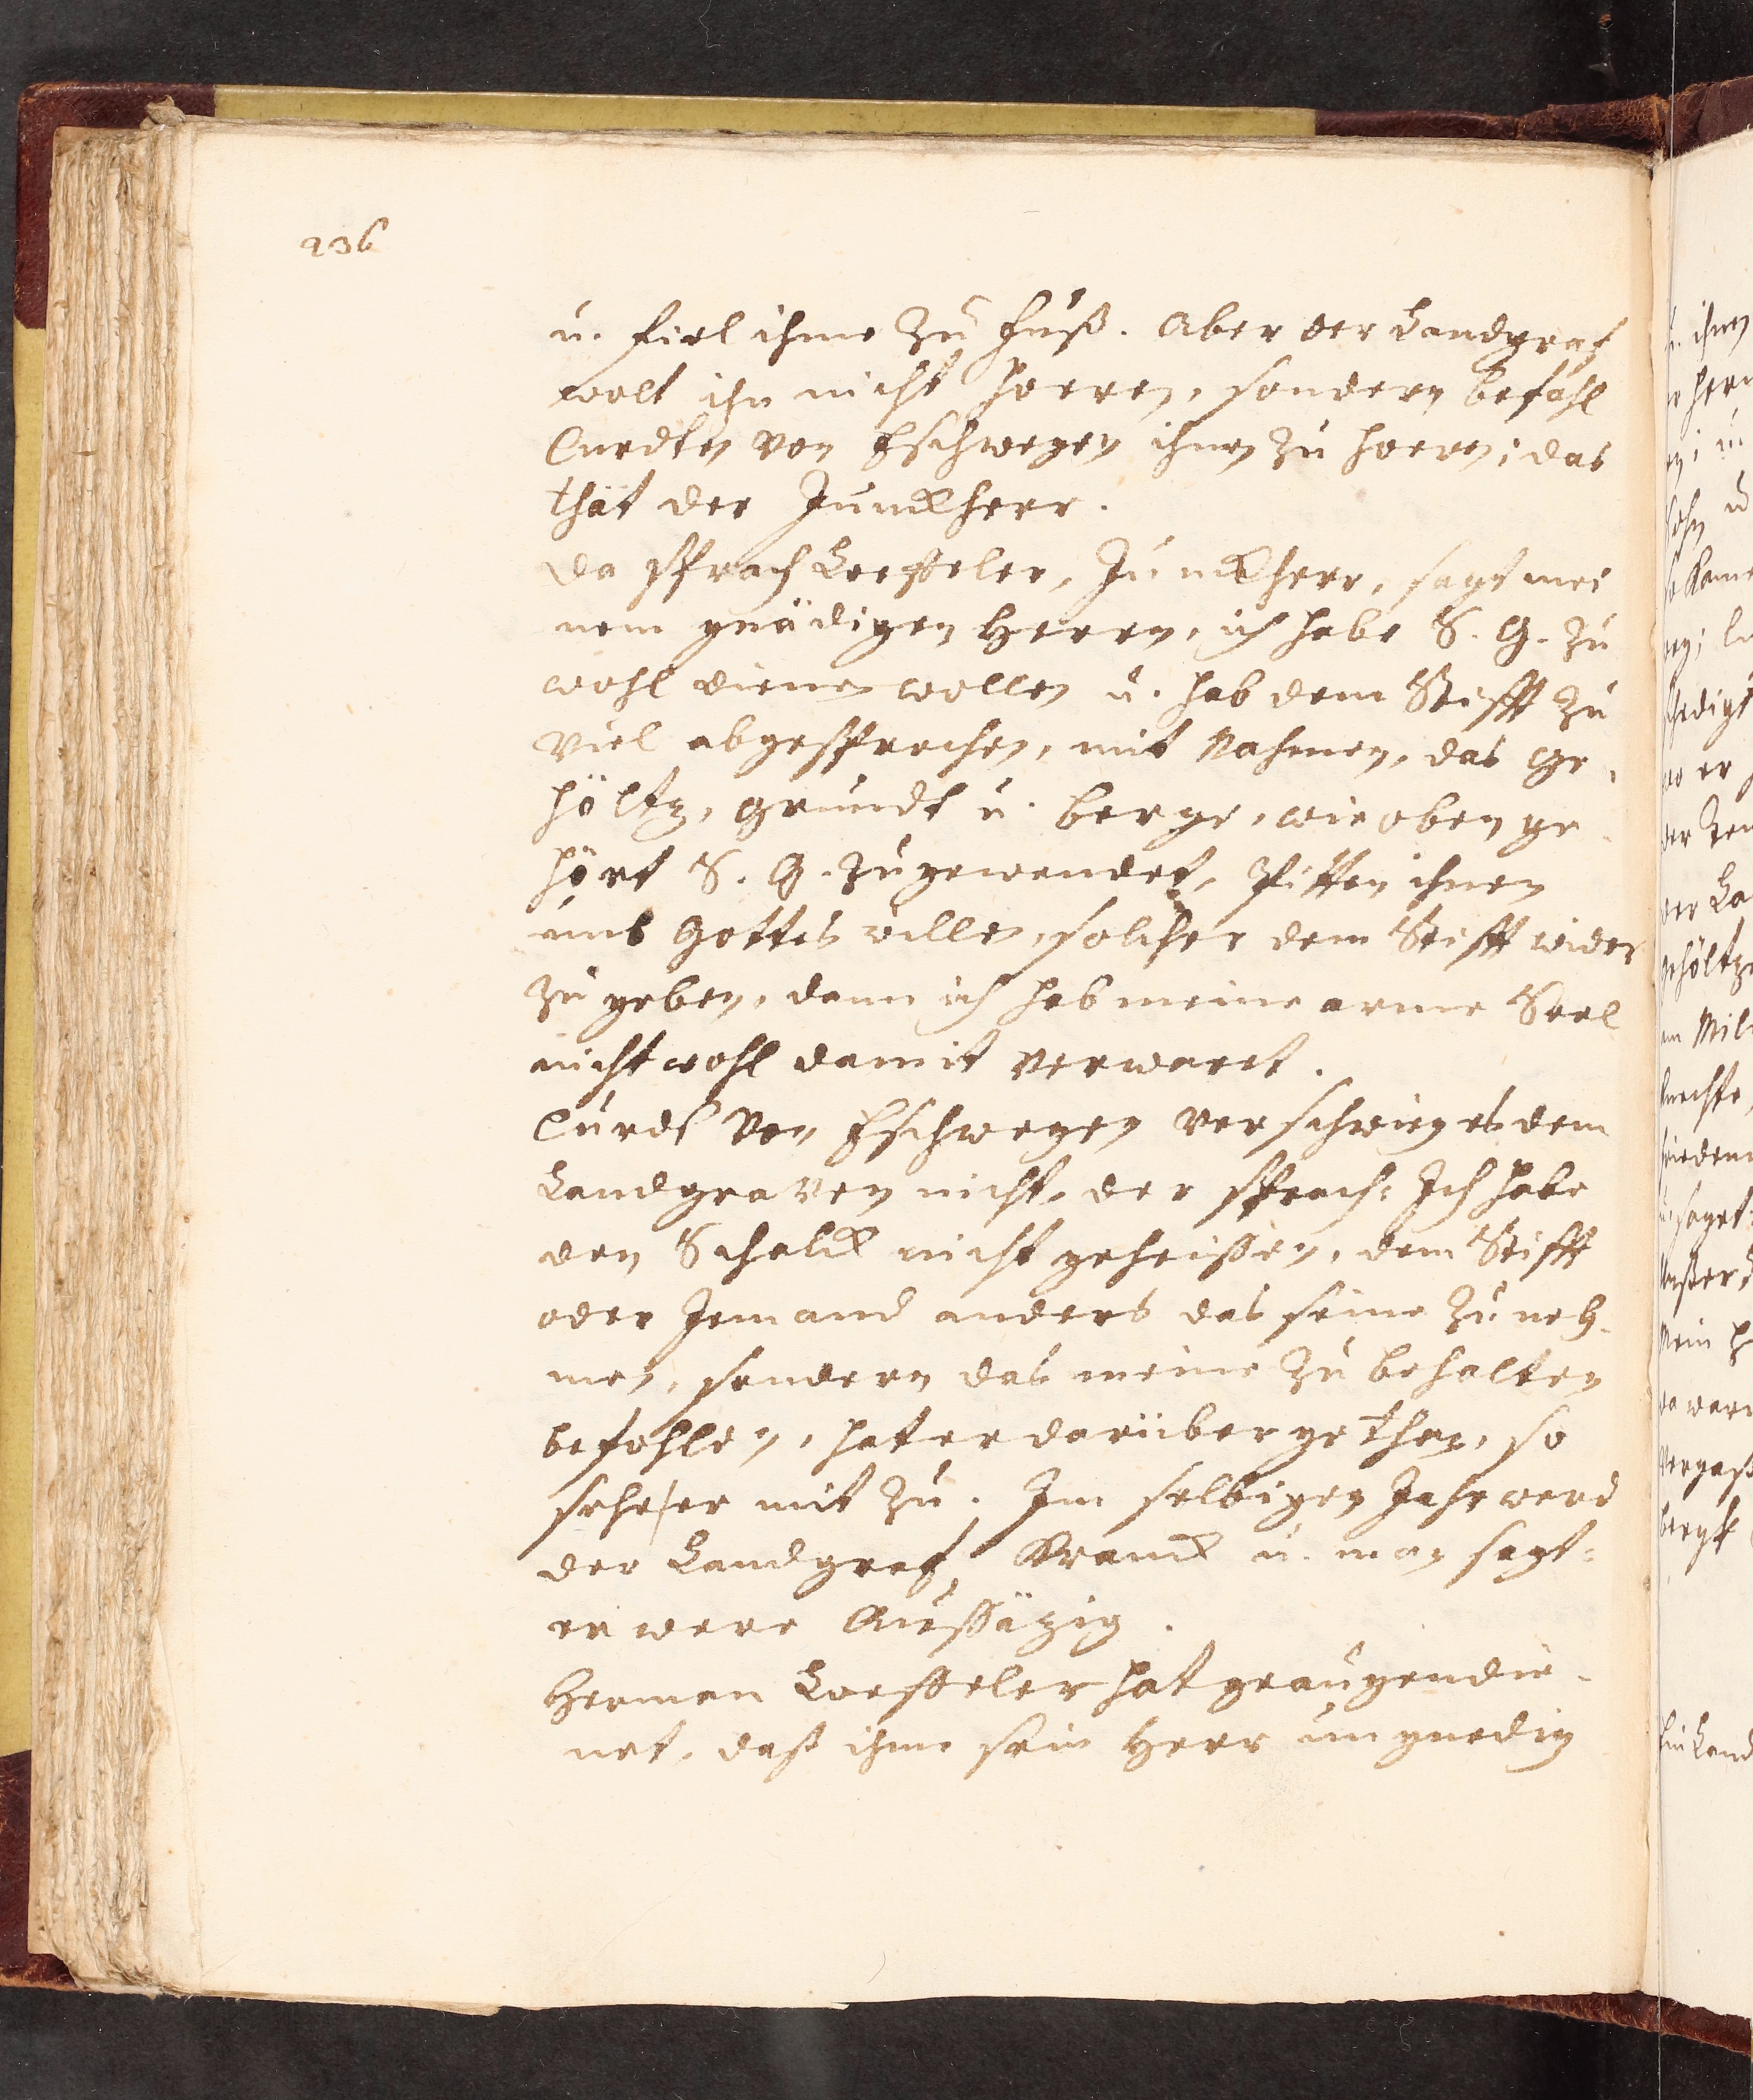 236
u. fiel ihme zu fuß. Aber der Landgraf
wolt ihn nicht hoeren, sondern befahl
Curdten von Eschwegen ihnen zu hoeren; das
thät der Junckherr.
da sprach Loeßeler, Junckherr, sagt mei
nem gnädigen Herren, ich habe S. G. zu
wohl dienen wollen u. hab dem Stifft zu
viel abgesprochen, mit Nahmen, das ge-
höltz, grundt u. berge, wie oben ge-
hört S. G. zugewendet, Pitten ihnen
umb Gottes willen, solches dem Stifft wider
zu geben, dann ich hab meine arme Seel
nicht wohl damit verwaret.
Curdt von Eschwegen verschwieg es dem
Landgraven nicht, der sprach: Ich habe
den Schalck nicht geheissen, dem Stifft
oder Jemand anders das seine zu neh-
men, sondern das meine zu behalten
befohlen, hat er darüber gethan, so
sehe er mit zu. Im selbigen Jahr ward
der Landgraf Kranck u. man sagt:
er were Aussäzig.
Herman Loeßeler hat geaugendie-
net, daß ihme sein Herr ungnedig